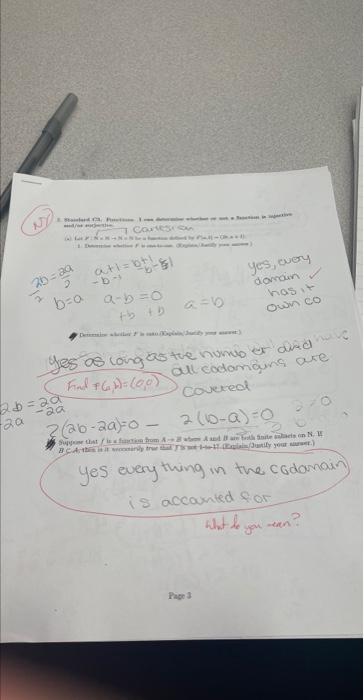 NY
3. Standard C3. Functions. I can determine whether or not a function is injective
and/or surjective.
Cartesian
(a) Let F: N × N → N × N be a function defined by F(a, b) = (2b, a + 1).
1. Determine whether F is one-to-one. (Explain/Justify your answer.)
2b = 2a
2 2
a+1 = b+1
yes, every
domain ✓
has it
own co
b=a a-b=0 a=b
+b +b
Determine whether F is onto. (Explain/Justify your answer.)
yes as long as the
all codomains are
Covered
Find F(a,b)=(0,0)
2b = 2a
-2a -2a
2(2b-2a)=0 - 2(b-a)=0
Suppose that f is a function from A → B where A and B are both finite subsets on N. If
B ⊂ A, then is it necessarily true that f is not 1-to-1? (Explain/Justify your answer.)
yes every thing in the codomain
is accounted for
What do you mean?
Page 3